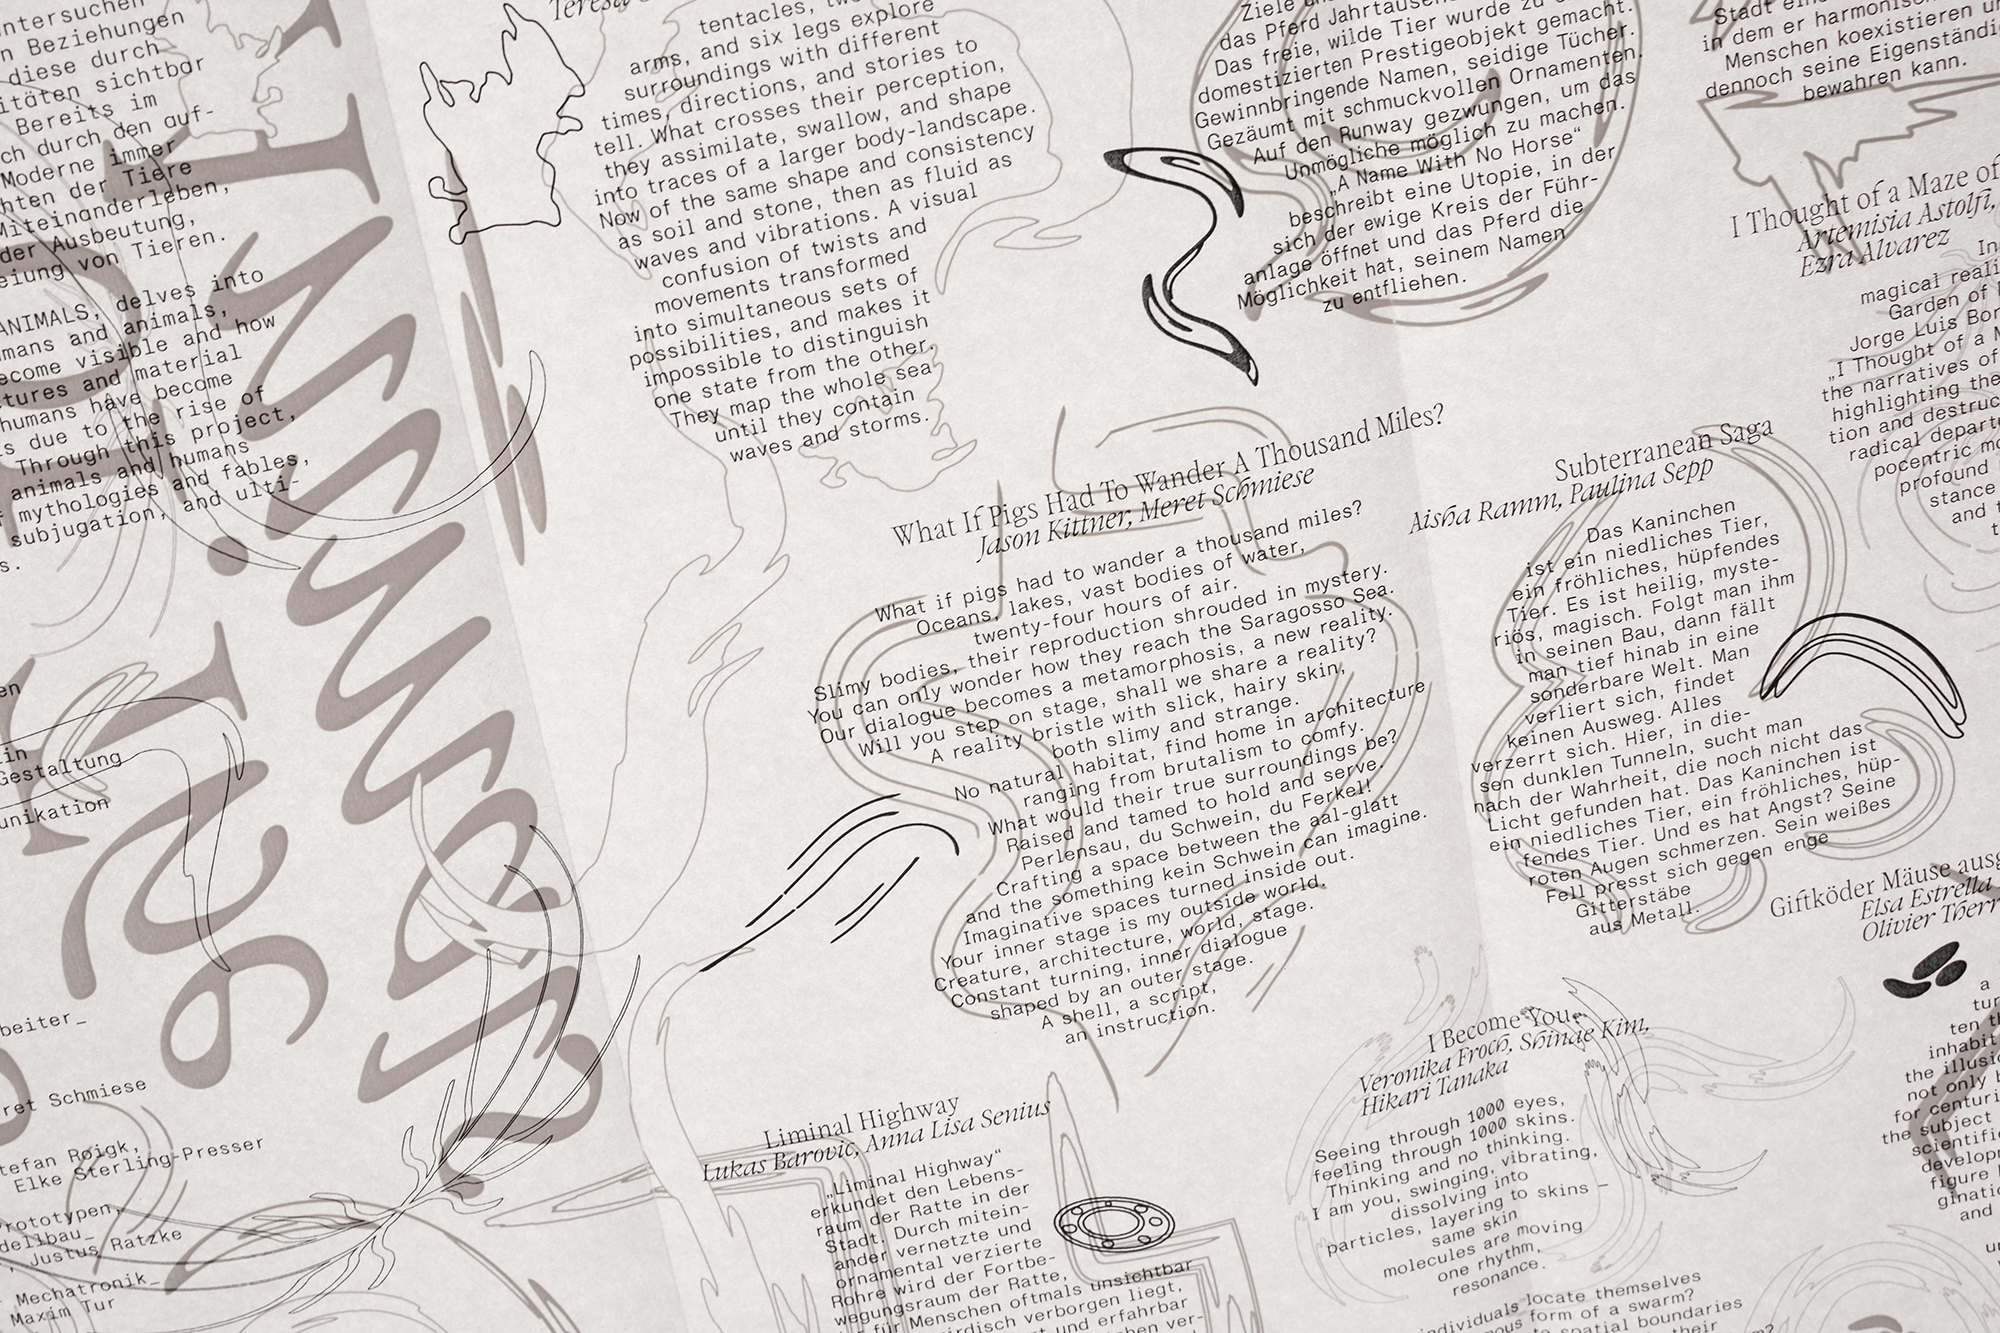 untersuchen
n Beziehungen
diese durch
itäten sichtbar
Bereits im
ch durch den auf-
Moderne immer
hten der Tiere
Miteinanderleben,
der Ausbeutung,
eiung von Tieren.
ANIMALS, delves into
mans and animals,
ecome visible and how
tures and material
humans have become
s due to the rise of
Through this project,
animals and humans
mythologies and fables,
subjugation, and ulti-
s.
en
in
Gestaltung
unikation
beiter_
ret Schmiese
tefan Roigk,
Elke Sterling-Presser
rototypen,
dellbau_
, Justus Ratzke
Mechatronik_
Maxim Tur
Teresa
tentacles, two
arms, and six legs explore
surroundings with different
times, directions, and stories to
tell. What crosses their perception,
they assimilate, swallow, and shape
into traces of a larger body-landscape.
Now of the same shape and consistency
as soil and stone, then as fluid as
waves and vibrations. A visual
confusion of twists and
movements transformed
into simultaneous sets of
possibilities, and makes it
impossible to distinguish
one state from the other.
They map the whole sea
until they contain
waves and storms.
Ziele
das Pferd Jahrtausen
Das freie, wilde Tier wurde zu
domestizierten Prestigeobjekt gemacht.
Gewinnbringende Namen, seidige Tücher.
Gezäumt mit schmuckvollen Ornamenten.
Auf den Runway gezwungen, um das
Unmögliche möglich zu machen.
„A Name With No Horse“
beschreibt eine Utopie, in der
sich der ewige Kreis der Führ-
anlage öffnet und das Pferd die
Möglichkeit hat, seinem Namen
zu entfliehen.
Stadt
in dem er harmonis
Menschen koexistieren
dennoch seine Eigenständi
bewahren kann.
I Thought of a Maze of
Artemisia Astolfi,
Ezra Alvarez
In
magical reali
Garden of
Jorge Luis Bor
„I Thought of a M
the narratives of
highlighting the
tion and destruc
radical depart
pocentric mo
profound
stance
and t
What If Pigs Had To Wander A Thousand Miles?
Jason Kittner, Meret Schmiese
What if pigs had to wander a thousand miles?
Oceans, lakes, vast bodies of water,
twenty-four hours of air.
Slimy bodies, their reproduction shrouded in mystery.
You can only wonder how they reach the Saragosso Sea.
Our dialogue becomes a metamorphosis, a new reality.
Will you step on stage, shall we share a reality?
A reality bristle with slick, hairy skin,
both slimy and strange.
No natural habitat, find home in architecture
ranging from brutalism to comfy.
What would their true surroundings be?
Raised and tamed to hold and serve.
Perlensau, du Schwein, du Ferkel!
Crafting a space between the aal-glatt
and the something kein Schwein can imagine.
Imaginative spaces turned inside out.
Your inner stage is my outside world.
Creature, architecture, world, stage.
Constant turning, inner dialogue
shaped by an outer stage.
A shell, a script,
an instruction.
Subterranean Saga
Aisha Ramm, Paulina Sepp
Das Kaninchen
ist ein niedliches Tier,
ein fröhliches, hüpfendes
Tier. Es ist heilig, myste-
riös, magisch. Folgt man ihm
in seinen Bau, dann fällt
man tief hinab in eine
sonderbare Welt. Man
verliert sich, findet
keinen Ausweg. Alles
verzerrt sich. Hier, in die-
sen dunklen Tunneln, sucht man
nach der Wahrheit, die noch nicht das
Licht gefunden hat. Das Kaninchen ist
ein niedliches Tier, ein fröhliches, hüp-
fendes Tier. Und es hat Angst? Seine
roten Augen schmerzen. Sein weißes
Fell presst sich gegen enge
Gitterstäbe
aus Metall.
Giftköder Mäuse aus
Elsa Estrella
Olivier Therr
a
tur
ten th
inhabit
the illusi
not only b
for centuri
the subject
scientific
develop
figure
ginatio
and
Liminal Highway
Lukas Barovic, Anna Lisa Senius
„Liminal Highway“
erkundet den Lebens-
raum der Ratte in der
Stadt. Durch mitein-
ander vernetzte und
ornamental verzierte
Rohre wird der Fortbe-
wegungsraum der Ratte,
für Menschen oftmals unsichtbar
irdisch verborgen liegt,
und erfahrbar
ver-
I Become You
Veronika Froch, Shinae Kim,
Hikari Tanaka
Seeing through 1000 eyes,
feeling through 1000 skins.
Thinking and no thinking.
I am you, swinging, vibrating,
dissolving into
particles, layering to skins –
same skin
molecules are moving
one rhythm,
resonance.
dividuals locate themselves
form of a swarm?
spatial boundaries
their